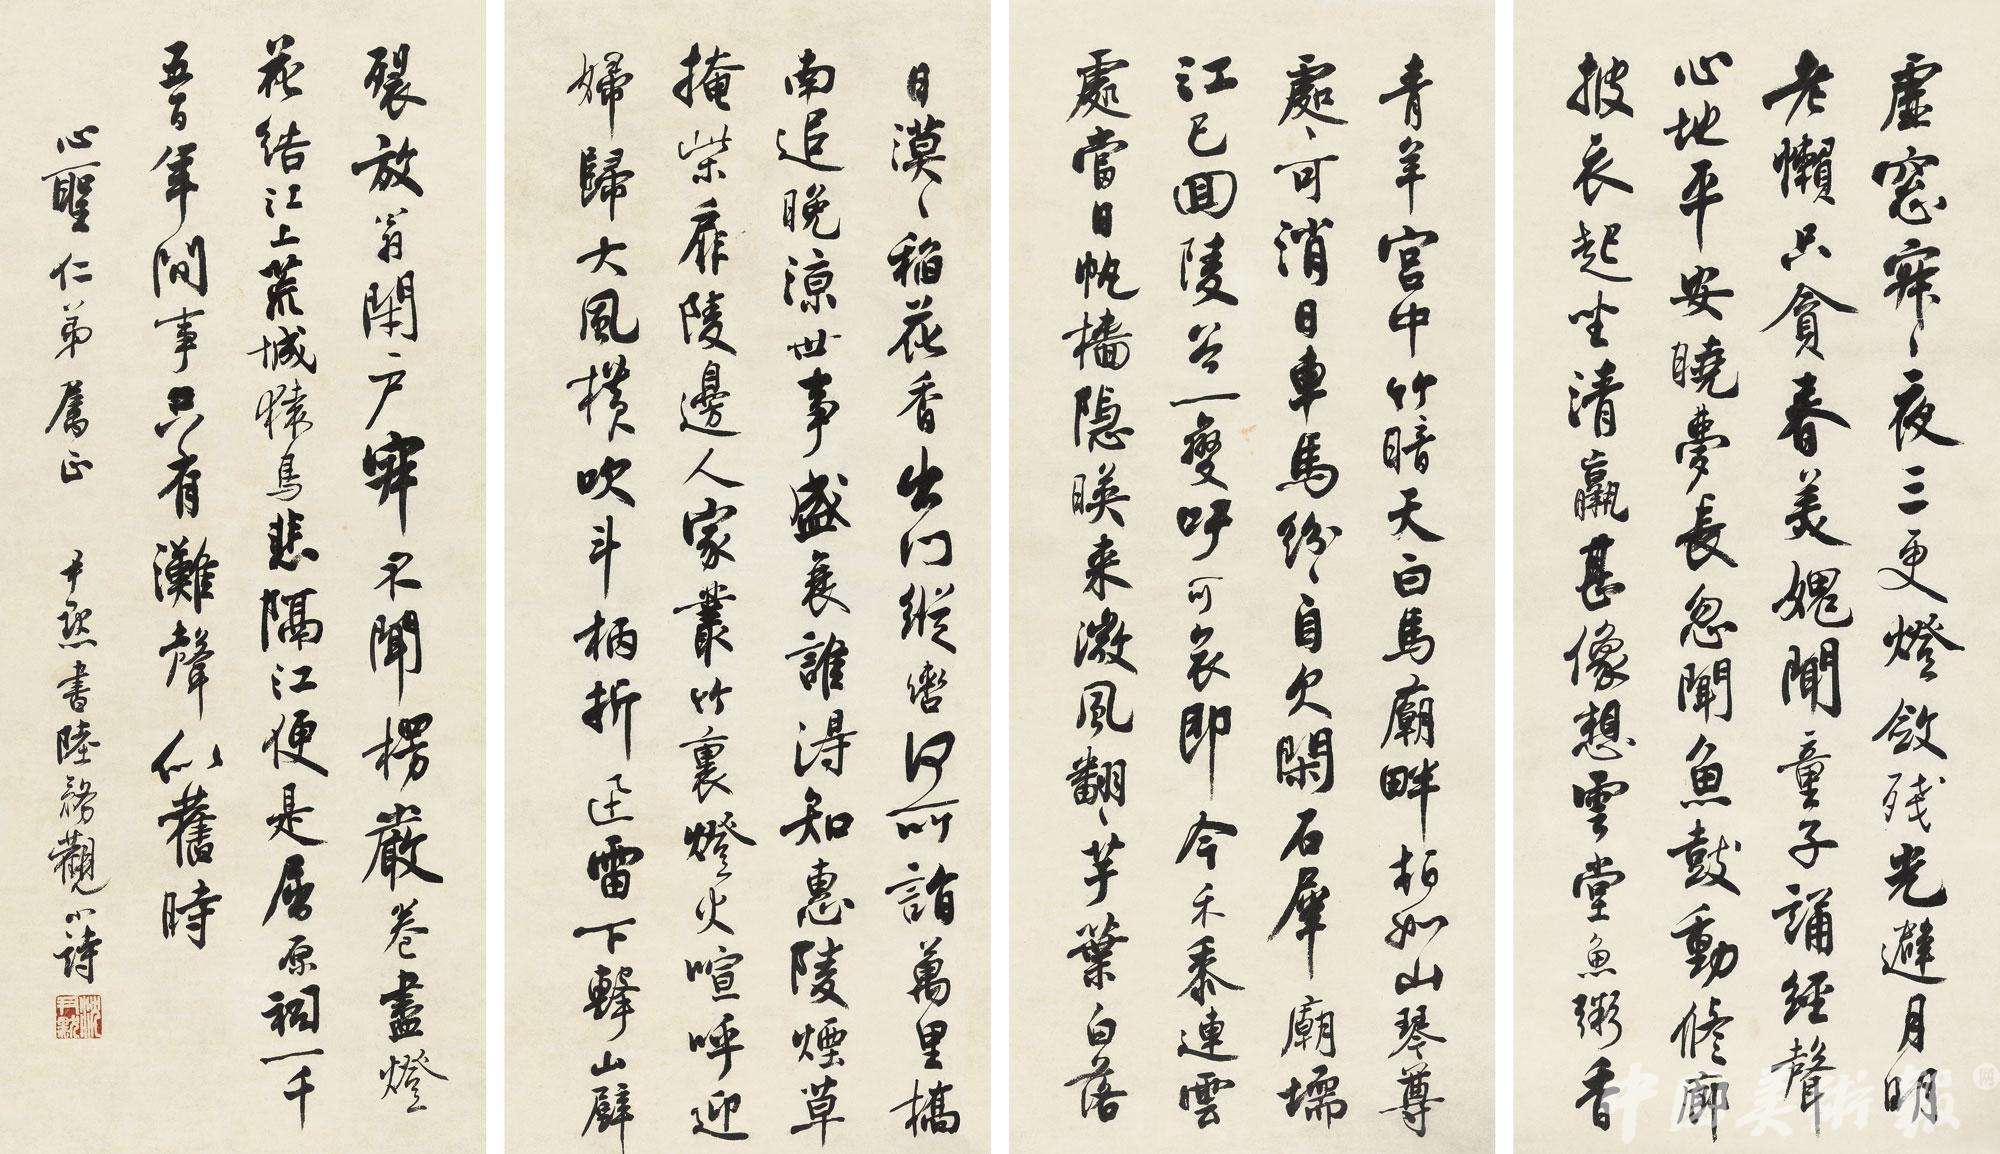 虛窓寂〻夜三更燈斂殘光避月明
老懶只貪春美媿聞童子誦經聲
心地平安曉夢長忽聞魚鼓動修廊
披衣起坐清羸甚像想雲堂魚粥香
青羊宮中竹暗天白馬廟畔柏如山琴尊
處〻可消日車馬紛〻自欠閑石犀廟壖
江已回陵谷一變吁可哀即今禾黍連雲
處當日帆檣隱映來微風翻〻芋葉白落
日漠〻稻花香出門縱轡何所詣萬里橋
南追晚涼世事盛衰誰得知惠陵煙草
掩柴扉陵邊人家叢竹裏燈火喧呼迎
婦歸大風橫吹斗柄折迅雷下擊山壁
裂放翁閉戶寂不聞楞嚴卷盡燈
花結江上荒城猿鳥悲隔江便是屈原祠一千
五百年間事只有灘聲似舊時
心聖仁弟屬正 尹默書陸務觀小詩
沈尹默
中國美術報